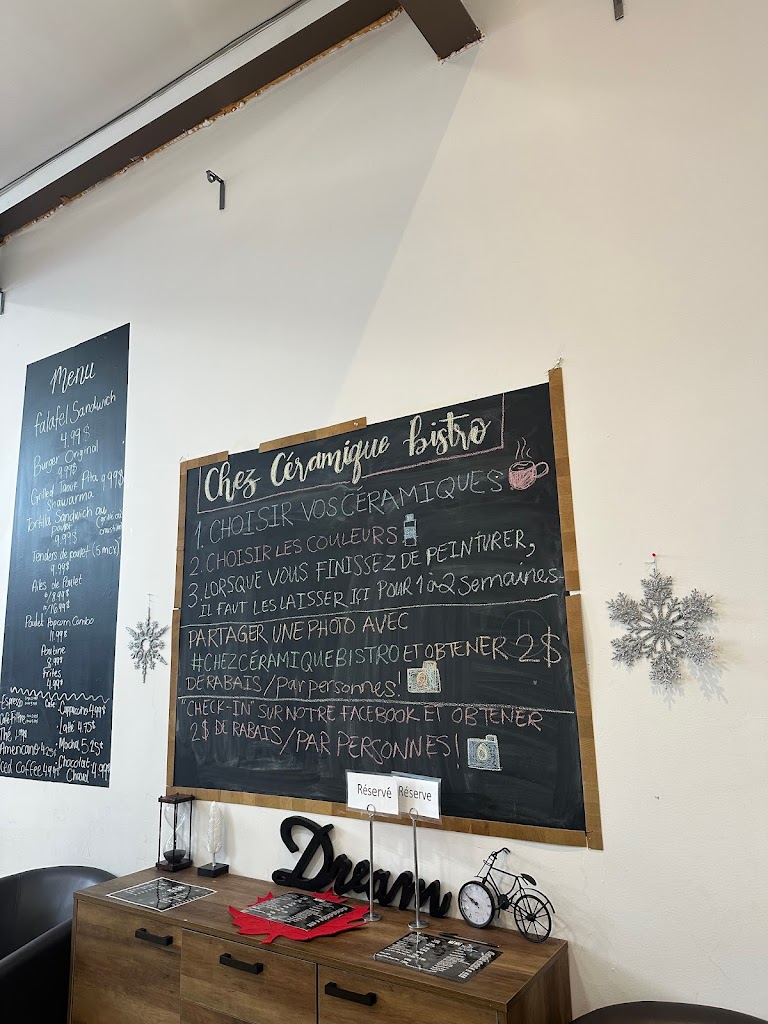 Menu
falafel Sandwich
4.99$
Burger Original
9.99$
Grilled Pita 9.99$
Shawarma
Tortilla Sandwich au
Poulet
9.99$
Tenders de poulet (5 mcx)
9.99$
Ailes de Poulet
Poulet Popcorn Combo
11.99$
Poutine
8.99$
Frites
4.99$
Espresso
Café Filtre
Thé
Americano 4.25$
Iced Coffee
Cappuccino 4.99$
Latté 4.75$
Mocha 5.25$
Chocolat 4.99$
Chaud
Chez Céramique bistro
1. CHOISIR VOS CÉRAMIQUES
2. CHOISIR LES COULEURS
3. LORSQUE VOUS FINISSEZ DE PEINTURER,
IL FAUT LES LAISSER IÇI POUR 1 à 2 Semaines
PARTAGER UNE PHOTO AVEC
#CHEZCÉRAMIQUEBISTRO ET OBTENER 2$
DE RABAIS / Par personnes!
"CHECK-IN" SUR NOTRE FACEBOOK ET OBTENER
2$ DE RABAIS / PAR PERSONNES!
Réservé
Réserve
Dream